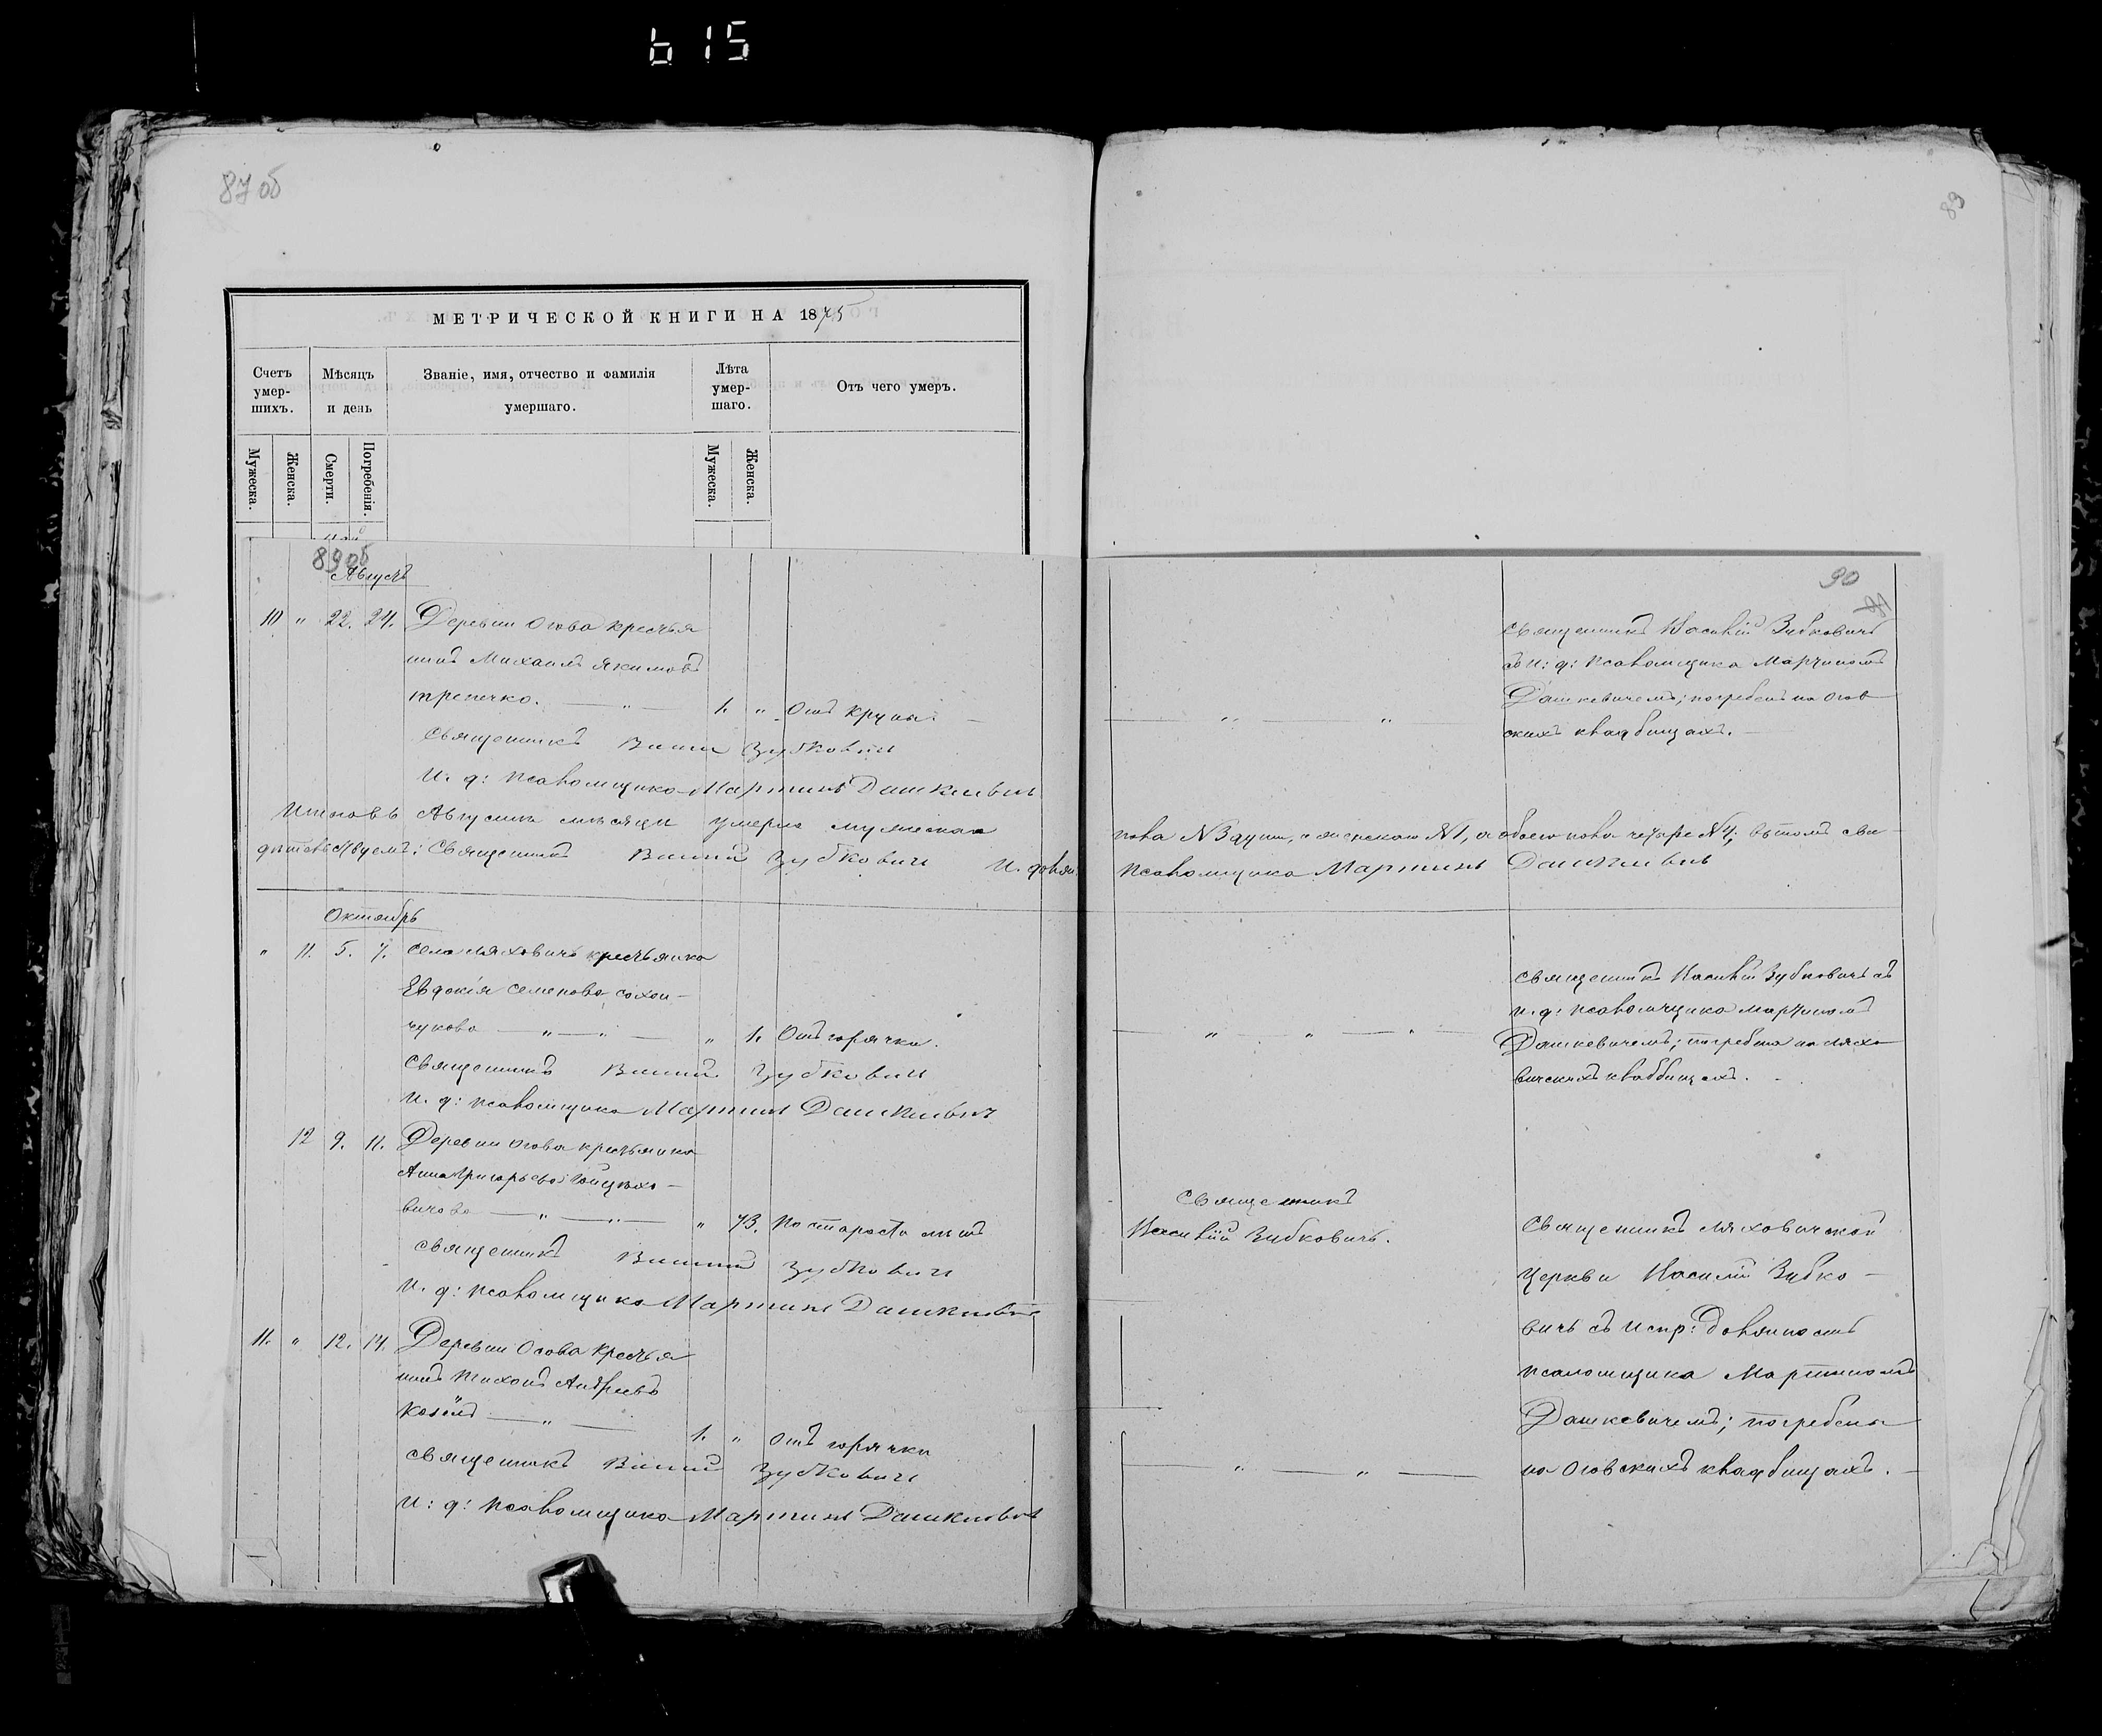 615
87 об
89
МЕТРИЧЕСКОЙ КНИГИ НА 1875
Счетъ умер-шихъ.
Мѣсяцъ и день
Званіе, имя, отчество и фамилія умершаго.
Лѣта умер-шаго.
Отъ чего умеръ.
Мужеска.
Женска.
Смерти.
Погребенія.
Мужеска.
Женска.
89 об
Августъ
10 " 22. 24. Деревни Огова крестья
нинъ Михаилъ Якимовъ
трепечко. — " — 1. " Отъ крупы. —
Священникъ Василій Зубковичъ
И. д: псаломщика Мартинъ Дашкевичъ
Итого въ Августѣ мѣсяцѣ умерло мужеска
свидѣтельствуемъ: Священникъ Василій Зубковичъ И. долж:
Октябрь
" 11. 5. 7. Села Ляховичъ крестьянка
Евдокія Семенова
чукова — " — " — " 1. Отъ горячки.
Священникъ Василій Зубковичъ
И. д: псаломщика Мартинъ Дашкевичъ
12 9. 11. Деревни Огова крестьянка
Анна Григорьева
вичова — " — " — " 73. По старости лѣтъ
Священникъ Василій Зубковичъ
И. д: псаломщика Мартинъ Дашкевичъ
11. " 12. 14. Деревни Огова крестья
нинъ Тихонъ Андреевъ
Козёлъ — " — 1. " Отъ горячки
Священникъ Василій Зубковичъ
И: д: псаломщика Мартинъ Дашкевичъ
90
Священникъ Василій Зубковичъ
съ И: д: псаломщика Мартиномъ
Дашкевичемъ; погребенъ на Огов
скихъ кладбищахъ. —
пола №3 души, а женскаго №1, а обоего пола четыре №4; въ томъ сви
псаломщика Мартинъ Дашкевичъ
Священникъ Василій Зубковичъ съ
и. д: псаломщика Мартиномъ
Дашкевичемъ; погребена на Ляхо
вичскихъ кладбищахъ. -
Священникъ
Василій Зубковичъ.
Священникъ Ляховичской
церкви Василій Зубко —
вичъ съ испр: должность
псаломщика Мартиномъ
Дашкевичемъ; погребены
на Оговскихъ кладбищахъ. —